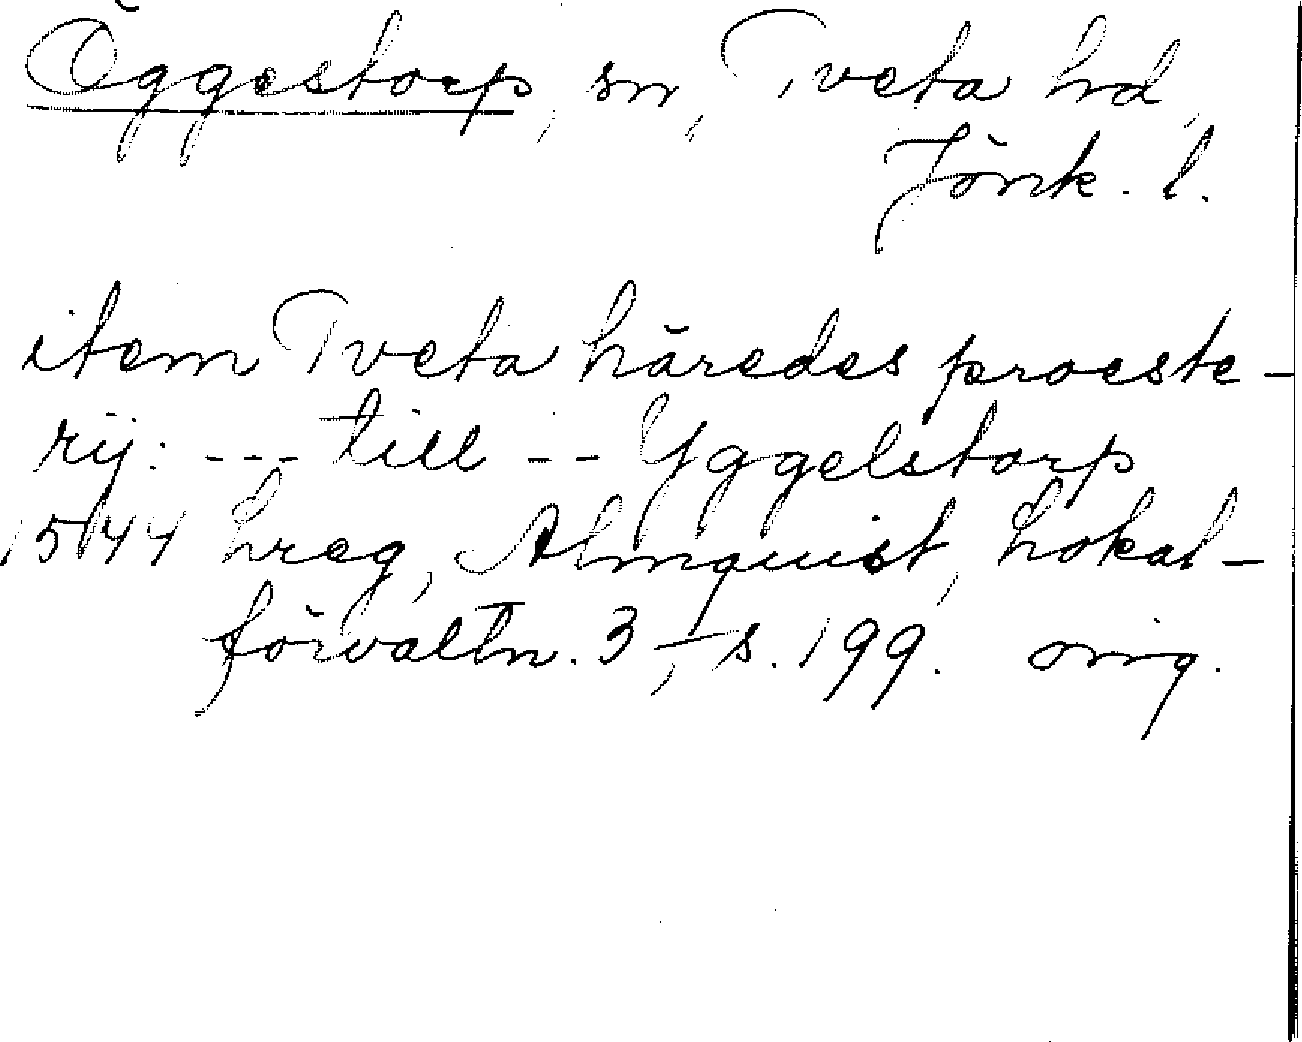 Öggestorp, sn, Tveta hd,
Jönk. l.
item Tveta häredes proeste-
rij: --- till -- Yggelstorp
1544 hreg, Almquist, Lokal-
förvaltn. 3, s. 199. orig.